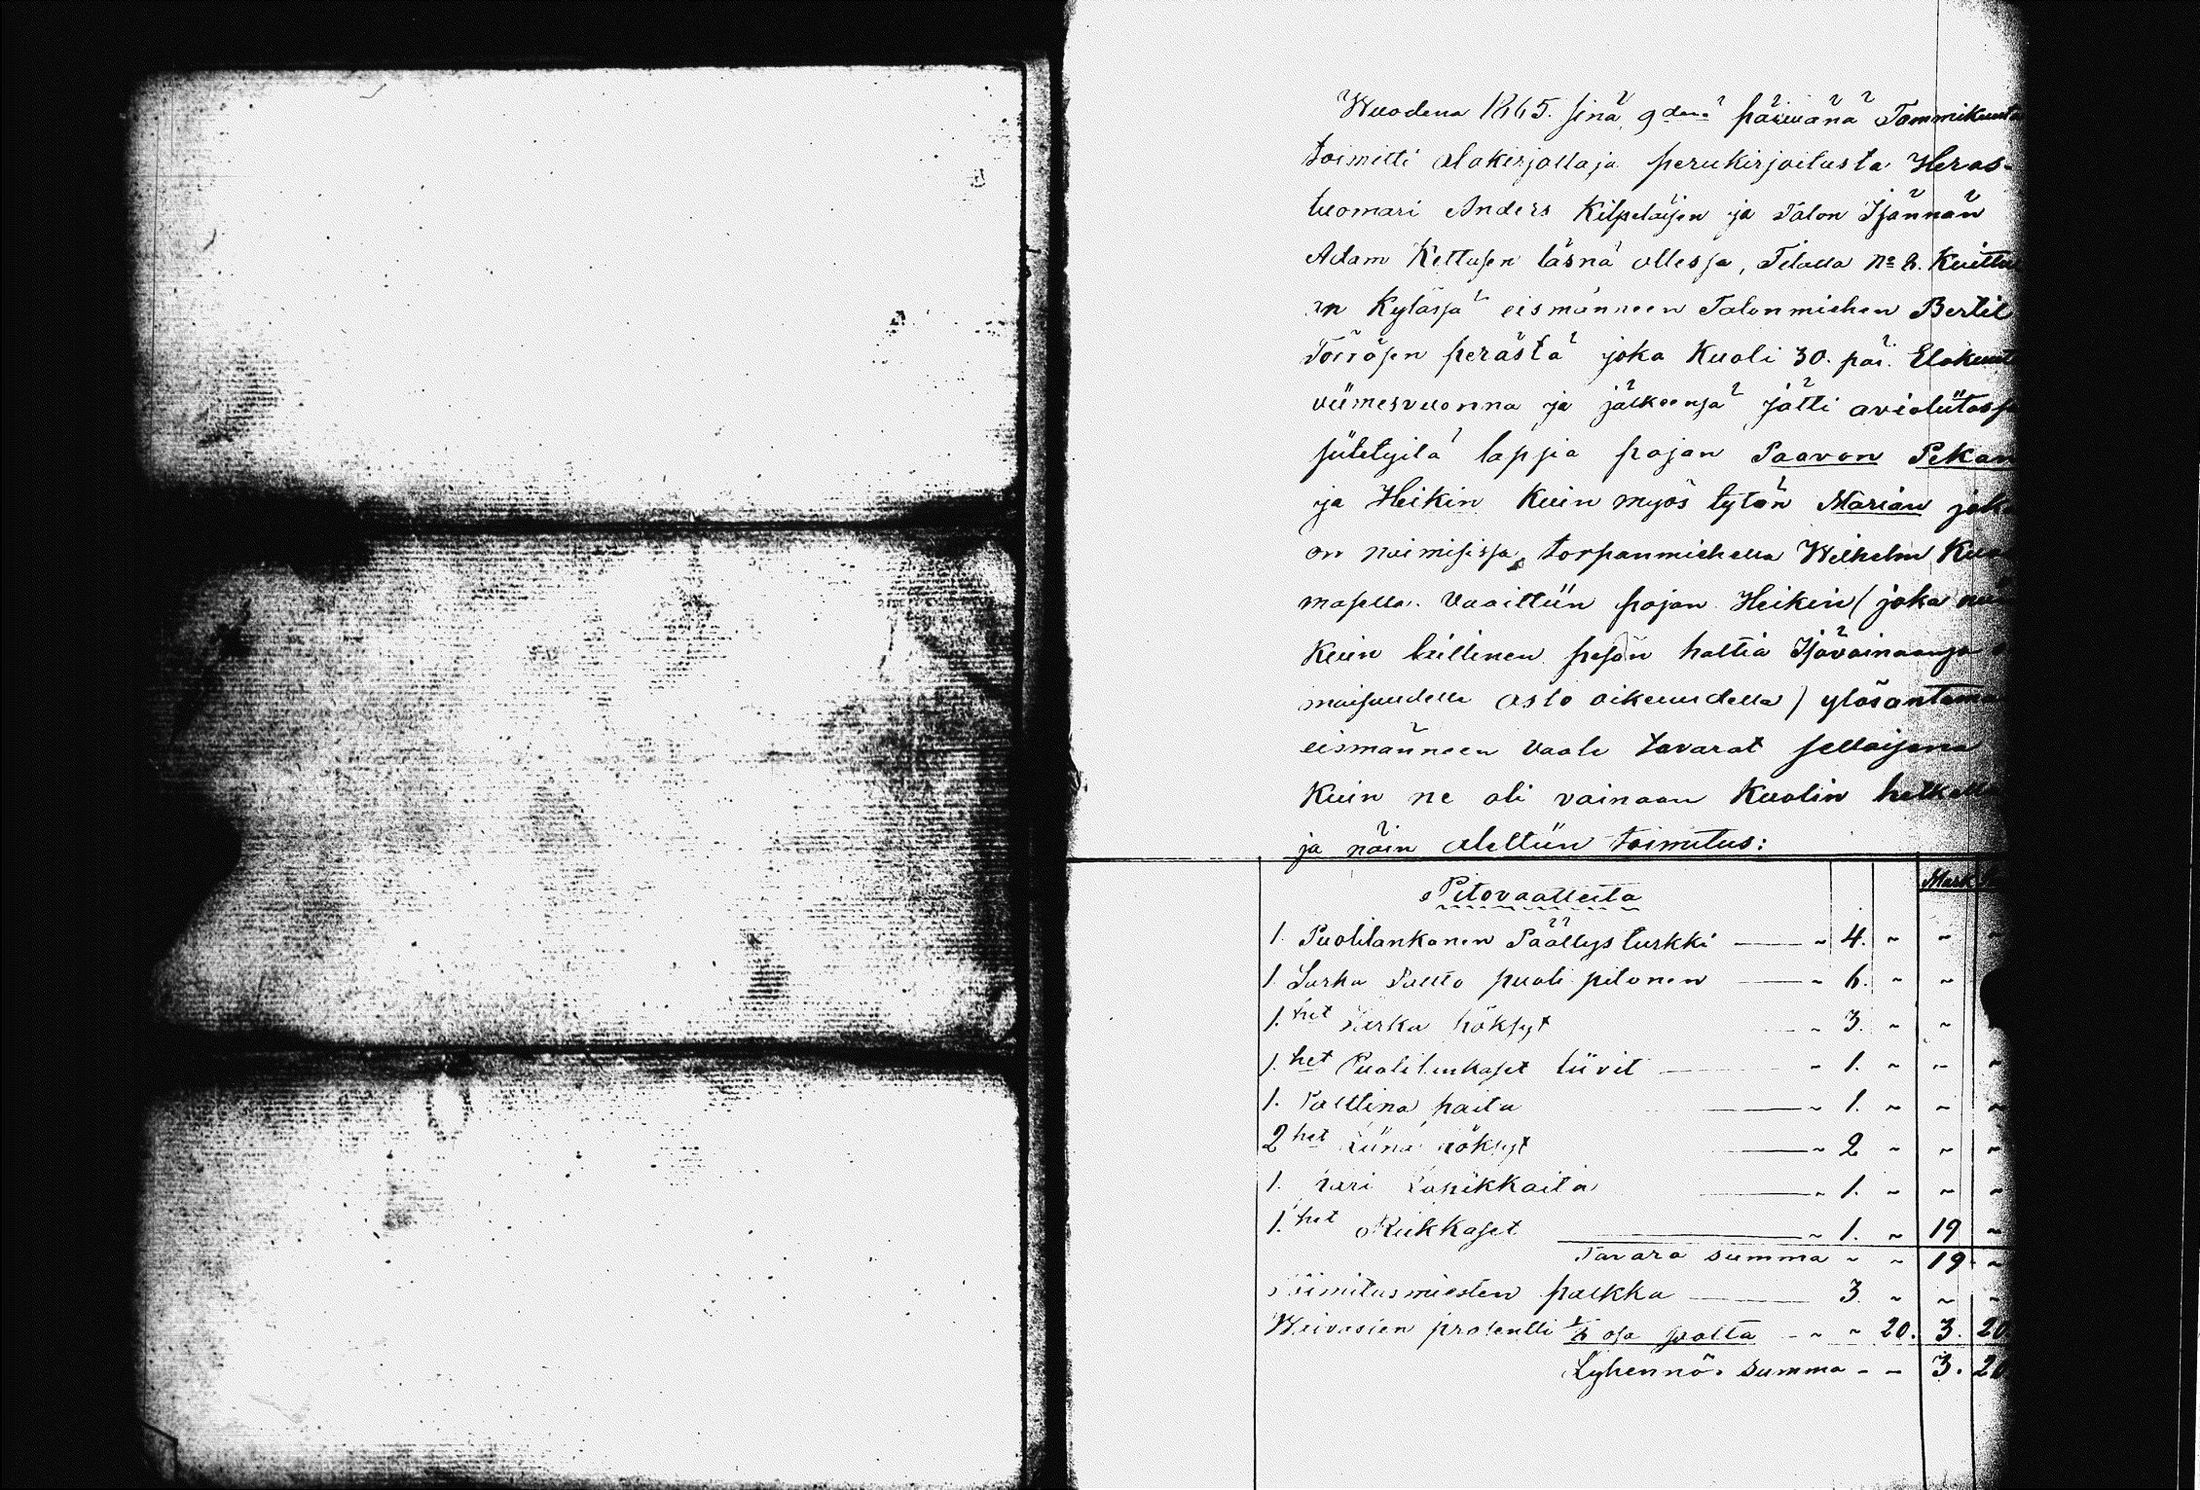 Wuodena 1865. sinä 9denä päiwänä Tammikuuta
toimitti alakirjottaja perukirjoitusta Heras-
tuomari Anders Kilpeläisen ja Talon Isännän
Adam Kettusen läsnä ollessa, Tilalla No 2. Kuittu
in Kylässä eismänneen Talonmiehen Bertil
Töiräsen perästä joka Kuoli 30. päi. Elokuuta
viimesvuonna ja jälkeensä jätti aviolütossa
siitetyitä lapsia pojan Paavon Pekan
ja Heikin Kuin myös tytön Marian joka
on naimisissa torpanmiehella Wilhelm
masella. Vaaittiin pojan Heikin (joka
Kuin laillinen pesän haltia Isävainaansa
maisuudella asto oikeuudella) ylösantamaan
eismänneen Vaate tavarat sellaisena
Kuin ne oli vainaan Kuolin hetkellä
ja näin alettiin toimitus:
Pitovaatteita Mark
1. Puolilankanen Päällysturkki — " 4. " " "
1. Sarka Palto puoli pitonen — " 6. " "
1. het Sarka höksyt " 3. " "
1. het Puolilankaset liivit — " 1. " " "
1. Palttina paita — " 1. " " "
2 het höksyt — " 2 " " "
1. pari — " 1. " " "
1. het Kukkaset — " 1. " 19 "
Tavara summa " " 19 "
Toimitusmiesten palkka — 3 " " "
Waivasien prosentti osa " " 20. 3. 20
Lyhennös summa - - 3. 20